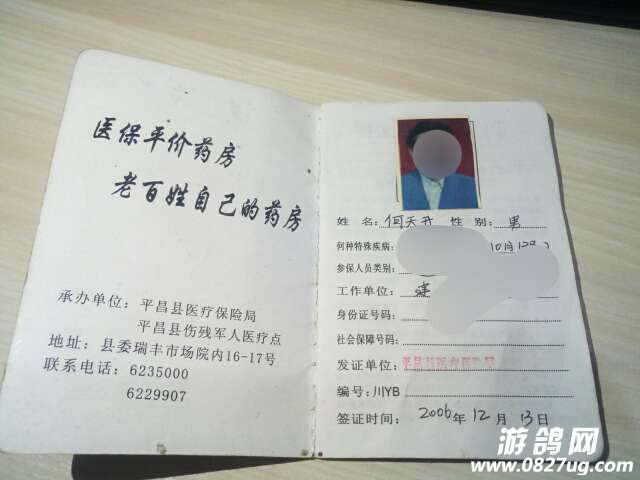 医保平价药房
老百姓自己的药房
承办单位：平昌县医疗保险局
平昌县伤残军人医疗点
地址：县委瑞丰市场院内16-17号
联系电话：6235000
6229907
姓名：何天升 性别：男
何种特殊疾病：
参保人员类别：
工作单位：建
身份证号码：
社会保障号码：
发证单位：平昌县医疗保险局
编号：川YB
签证时间：2006年12月13日
游鸽网
www.0827ug.com